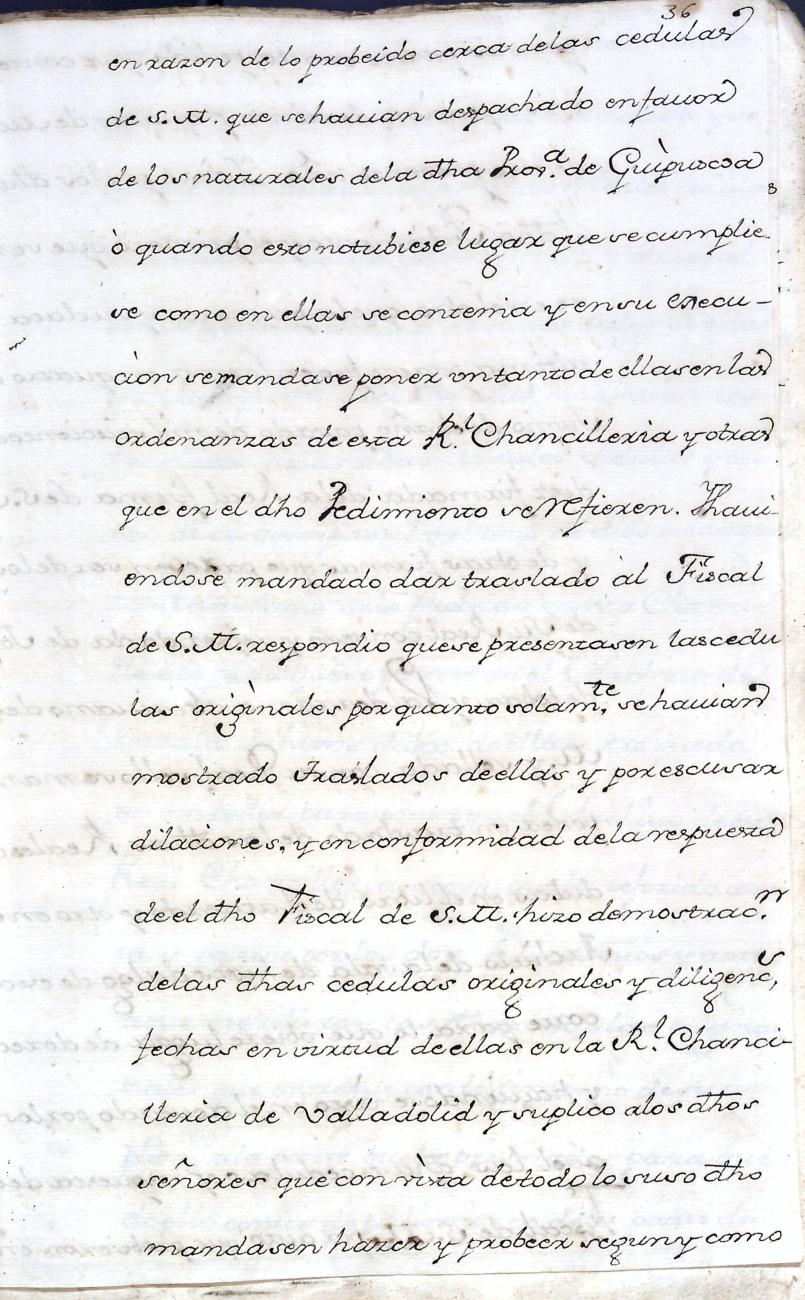 36
en razon de lo probeido cerca delas cedulas
de S.M. que sehauian despachado en fauor
de los naturales dela dha Prov.ª de Guipuscoa
ò quando esto notubiese lugar que se cumplie-
se como en ellas se contenia y en su execu-
cion semandase poner vn tanto de ellas en las
ordenanzas de esta R.l Chancilleria y otras
que en el dho Pedimiento se refieren. Yhaui-
endose mandado dar traslado àl Fiscal
de S.M. respondio que se presentasen las cedu
las originales por quanto solam.te se hauian
mostrado traslados de ellas y por escusar
dilaciones, y en conformidad de la respuesta
de el dho Fiscal de S.M. hizo demostrac.n
delas dhas cedulas originales y diligenc.s
fechas en virtud de ellas en la R.l Chanci-
lleria de Valladolid y suplico alos dhos
señores que con vista de todo lo suso dho
mandasen hazer y probeer segun y como